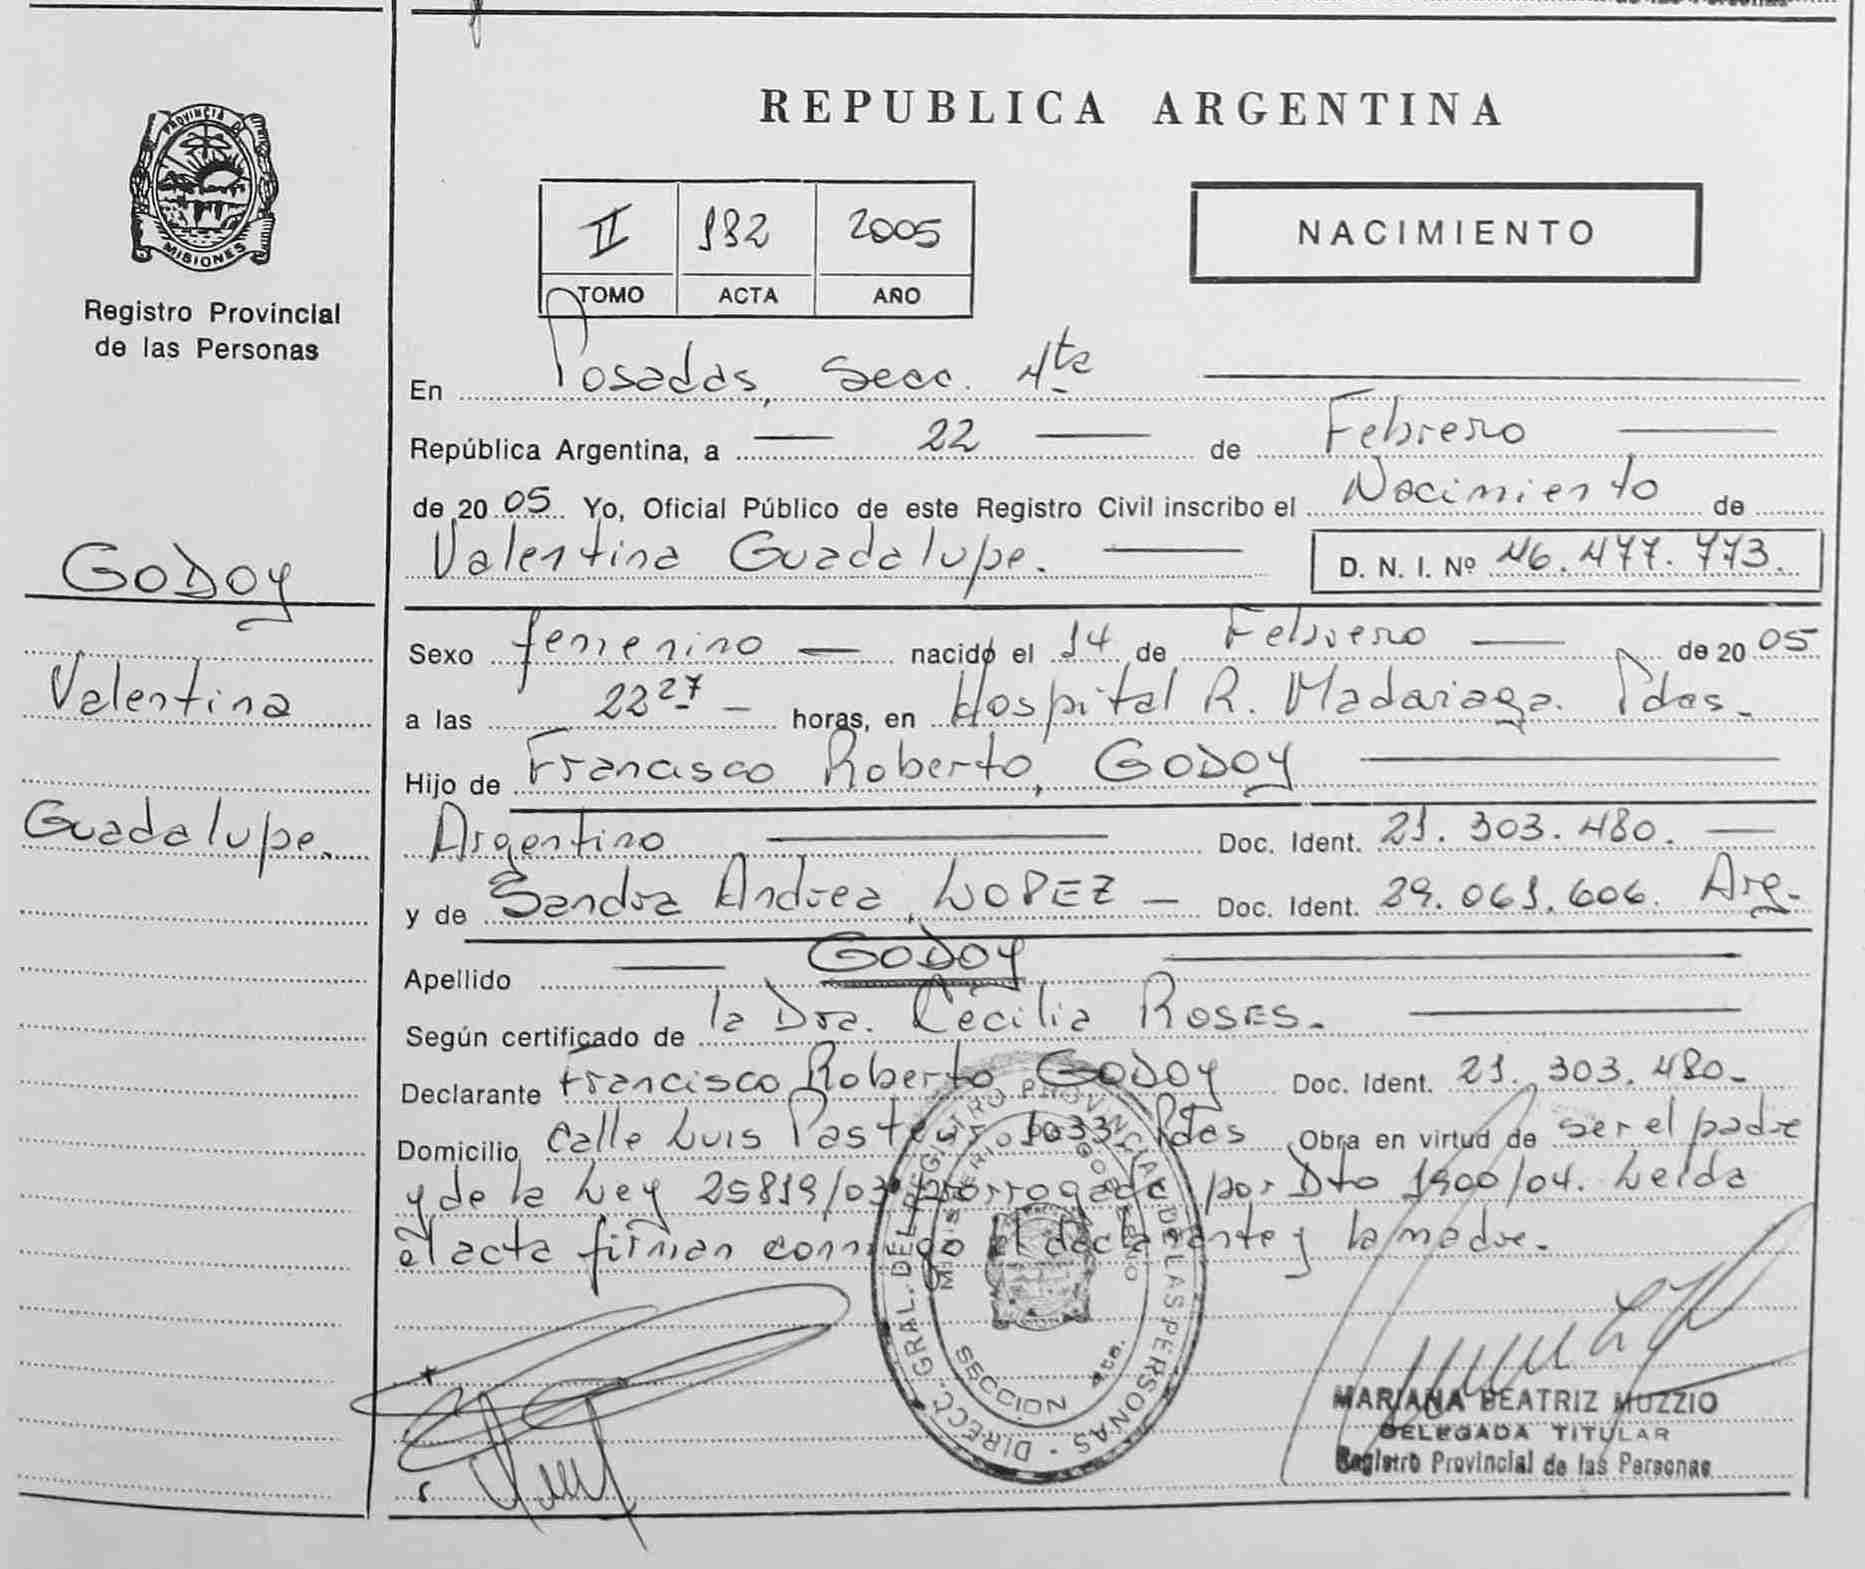 PROVINCIA D
MISIONES
Registro Provincial
de las Personas
GODOY
Valentina
Guadalupe.
REPUBLICA ARGENTINA
II 132 2005
TOMO ACTA AÑO
NACIMIENTO
En Posadas, Secc. 4ta
República Argentina, a 22 de Febrero
de 20 05 Yo, Oficial Público de este Registro Civil inscribo el Nacimiento de
Valentina Guadalupe. D. N. I. Nº 46.477.773.
Sexo femenino nacido el 14 de Febrero de 20 05
a las 22 27 horas, en Hospital R. Madariaga. Pdas.
Hijo de Francisco Roberto, GODOY
Argentino Doc. Ident. 21.303.480.
y de Sandra Andrea, LOPEZ Doc. Ident. 29.061.606. Arg.
Apellido GODOY
Según certificado de la Dra. Cecilia ROSES.
Declarante Francisco Roberto GODOY Doc. Ident. 21.303.480
Domicilio Calle Luis Pasteur 1033 Pdas Obra en virtud de ser el padre
y de la Ley 25819/03 prorrogada por Dto 1900/04. Leida
el acta firman conmigo el declarante y la madre.
DIRECC. GRAL. DEL REGISTRO PROVINCIAL DE LAS PERSONAS
MINISTERIO DE GOBIERNO
SECCION 4ta.
MARIANA BEATRIZ MUZZIO
DELEGADA TITULAR
Registro Provincial de las Personas